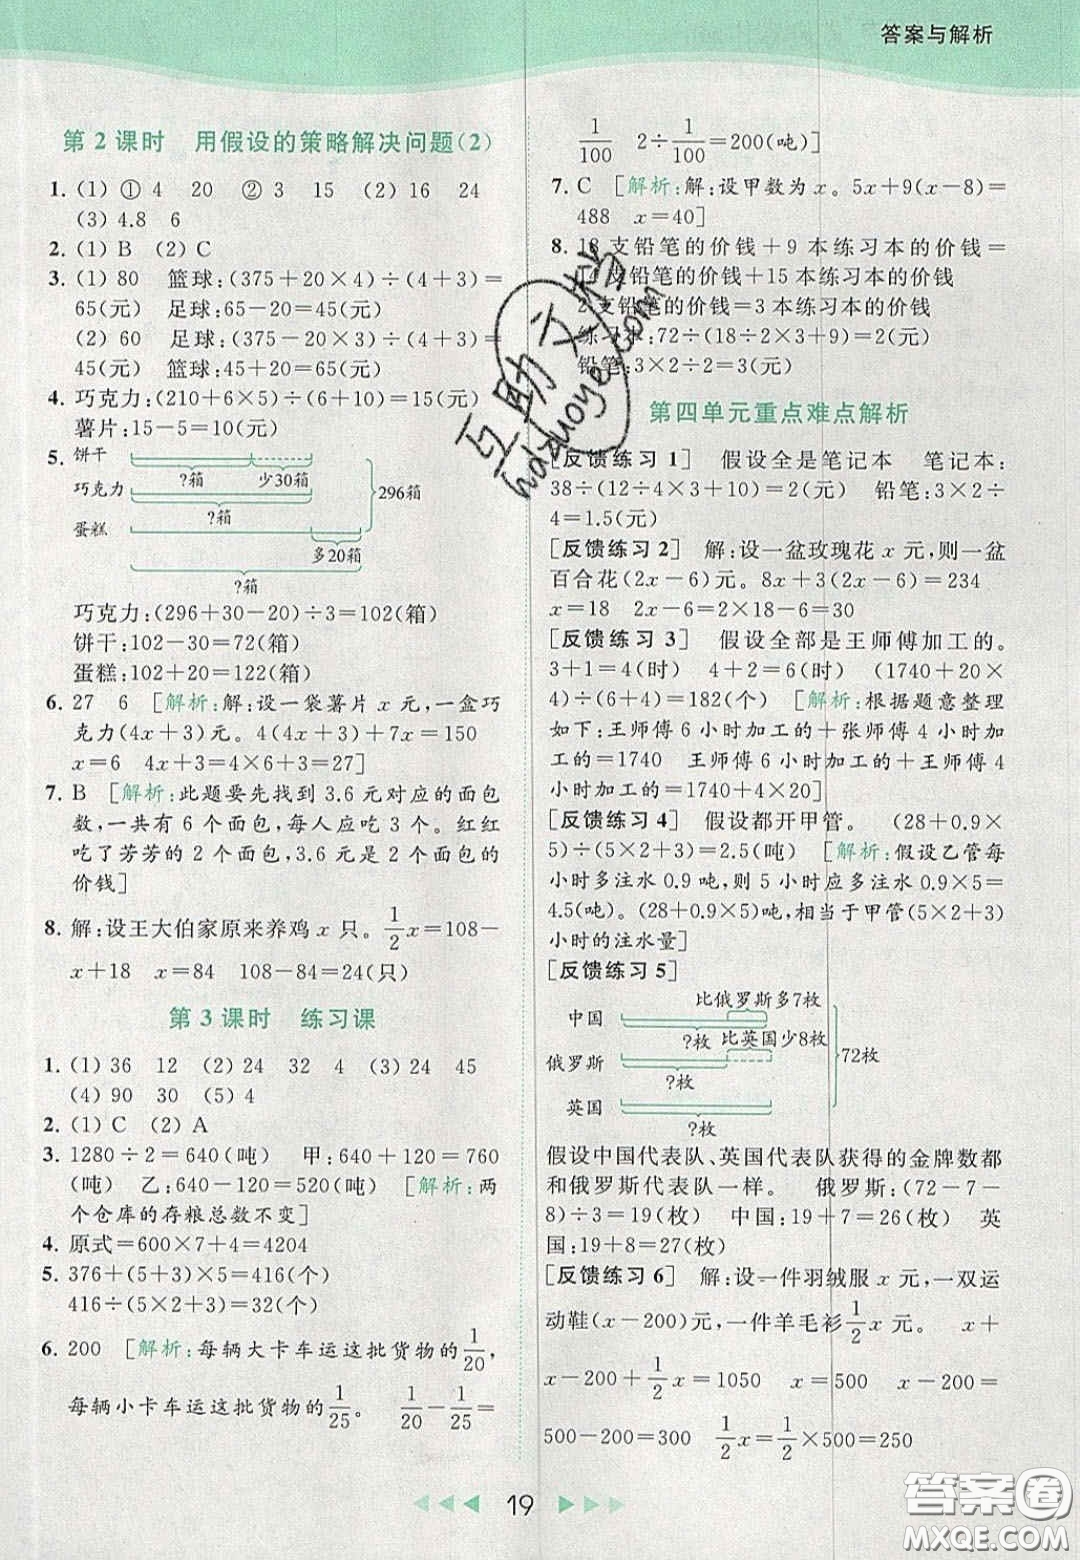 答案与解析
第2课时 用假设的策略解决问题(2)
1. (1) ① 4 20 ② 3 15 (2) 16 24
(3) 4.8 6
2. (1) B (2) C
3. (1) 80 篮球:(375+20×4)÷(4+3)=
65(元) 足球:65-20=45(元)
(2) 60 足球:(375-20×3)÷(4+3)=
45(元) 篮球:45+20=65(元)
4. 巧克力:(210+6×5)÷(6+10)=15(元)
薯片:15-5=10(元)
5. 饼干
?箱 少30箱
巧克力
296箱
?箱
蛋糕
多20箱
?箱
巧克力:(296+30-20)÷3=102(箱)
饼干:102-30=72(箱)
蛋糕:102+20=122(箱)
6. 27 6 [解析:解:设一袋薯片 x 元,一盒巧
克力(4x+3)元。4(4x+3)+7x=150
x=6 4x+3=4×6+3=27]
7. B [解析:此题要先找到 3.6 元对应的面包
数,一共有 6 个面包,每人应吃 3 个。红红
吃了芳芳的 2 个面包,3.6 元是 2 个面包的
价钱]
8. 解:设王大伯家原来养鸡 x 只。1/2x=108-
x+18 x=84 108-84=24(只)
第3课时 练习课
1. (1) 36 12 (2) 24 32 4 (3) 24 45
(4) 90 30 (5) 4
2. (1) C (2) A
3. 1280÷2=640(吨) 甲:640+120=760
(吨) 乙:640-120=520(吨) [解析:两
个仓库的存粮总数不变]
4. 原式=600×7+4=4204
5. 376+(5+3)×5=416(个)
416÷(5×2+3)=32(个)
6. 200 [解析:每辆大卡车运这批货物的1/20,
每辆小卡车运这批货物的1/25。 1/20-1/25=
1/100 2÷1/100=200(吨)]
7. C [解析:解:设甲数为 x。5x+9(x-8)=
488 x=40]
8. 18 支铅笔的价钱+9 本练习本的价钱=
14 支铅笔的价钱+15 本练习本的价钱
2 支铅笔的价钱=3 本练习本的价钱
练习本:72÷(18÷2×3+9)=2(元)
铅笔:3×2÷2=3(元)
第四单元重点难点解析
[反馈练习 1] 假设全是笔记本 笔记本:
38÷(12÷4×3+10)=2(元) 铅笔:3×2÷
4=1.5(元)
[反馈练习 2] 解:设一盆玫瑰花 x 元,则一盆
百合花(2x-6)元。8x+3(2x-6)=234
x=18 2x-6=2×18-6=30
[反馈练习 3] 假设全部是王师傅加工的。
3+1=4(时) 4+2=6(时) (1740+20×
4)÷(6+4)=182(个) [解析:根据题意整理
如下:王师傅 6 小时加工的+张师傅 4 小时
加工的=1740 王师傅 6 小时加工的+王师傅 4
小时加工的=1740+4×20]
[反馈练习 4] 假设都开甲管。 (28+0.9×
5)÷(5×2+3)=2.5(吨) [解析:假设乙管每
小时多注水 0.9 吨,则 5 小时应多注水 0.9×5=
4.5(吨)。(28+0.9×5)吨,相当于甲管(5×2+3)
小时的注水量]
[反馈练习 5]
比俄罗斯多7枚
中国
?枚 比英国少8枚
俄罗斯 72枚
?枚
英国
?枚
假设中国代表队、英国代表队获得的金牌数都
和俄罗斯代表队一样。 俄罗斯:(72-7-
8)÷3=19(枚) 中国:19+7=26(枚) 英
国:19+8=27(枚)
[反馈练习 6] 解:设一件羽绒服 x 元,一双运
动鞋(x-200)元,一件羊毛衫1/2x 元。 x+
x-200+1/2x=1050 x=500 x-200=
500-200=300 1/2x=1/2×500=250
19
互助文学
hdzhuoye.com
答案圈
MXQE.COM